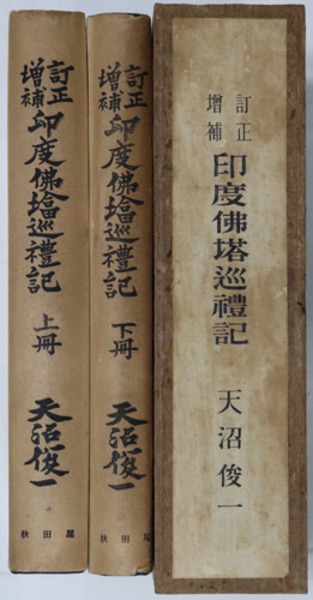 訂正
増補
印度佛塔巡禮記
上冊
天沼俊一
秋田屋
訂正
増補
印度佛塔巡禮記
下冊
天沼俊一
秋田屋
訂正
増補
印度佛塔巡禮記
天沼俊一